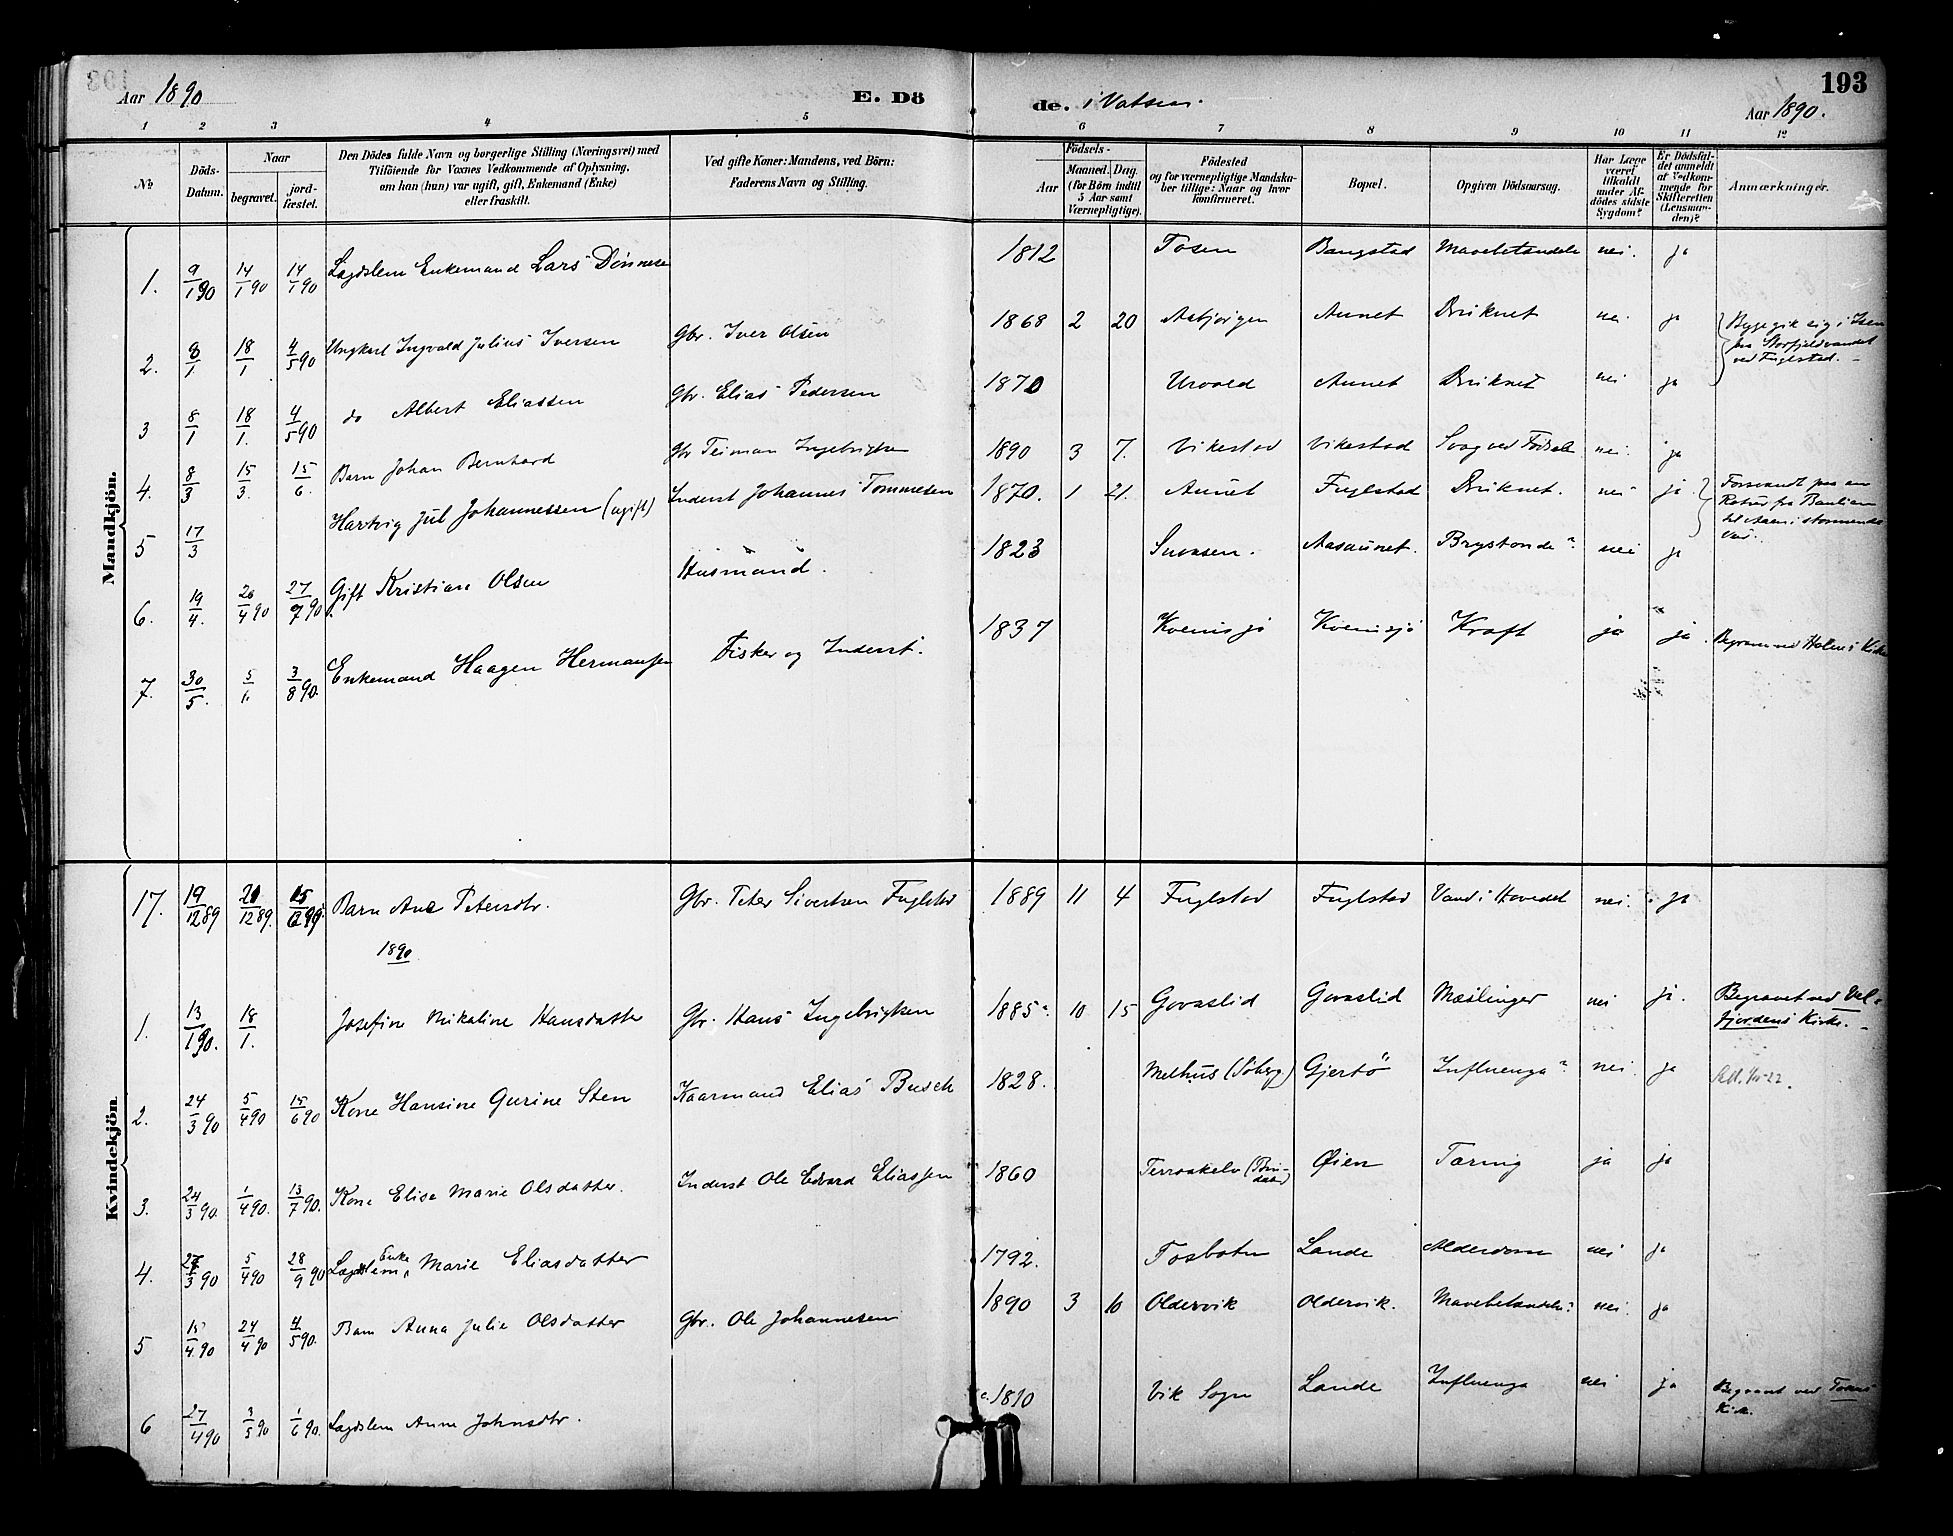 Aar 1890
E. Dö
de. i Vatsen.
193
Aar 1890.
1 2 3 4 5 6 7 8 9 10 11 12
No
Döds-Datum.
Naar
begravet.
jord-fæstet.
Den Dödes fulde Navn og borgerlige Stilling (Næringsvei) med
Tilföiende for Voxnes Vedkommende af Oplysning,
om han (hun) var ugift, gift, Enkemand (Enke)
eller fraskilt.
Ved gifte Koner: Mandens, ved Börn:
Faderens Navn og Stilling.
Födsels-
Aar
Maaned. Dag.
(for Börn indtil
5 Aar samt
Værnepligtige).
Födested
og for værnepligtige Mandska-
ber tillige: Naar og hvor
konfirmeret.
Bopæl.
Opgiven Dödsaarsag.
Har Læge
været
tilkaldt
under Af-
dödes sidste
Sygdom?
Er Dödsfal-
det anmeldt
af Vedkom-
mende for
Skifteretten
(Lensman-
den)?
Anmærkninger.
Mandkjön.
1. 9/1 90 14/1 90 14/1 90 Lægdslem Enkemand Lars Dönnesen 1812 Tosen Bangstad Mavebetændelse nei. ja
2. 8/1 18/1 4/5 90 Ungkarl Ingvald Julius Iversen Gbr. Iver Olsen 1868 2 20 Aabjørgen Aunet Druknet nei. ja
3 8/1 18/1. 4/5 90 do Albert Eliassen Gbr. Elias Pedersen 1870 Urvold Aunet Druknet nei ja
ved Fuglestad.
4. 8/3 15/3. 15/6. Barn Johan Bernhard Gbr Teiman Ingebrigtsen 1890 3 7. Vikestad Vikestad Svag ved Födsel nei. ja
5 17/3 Hartvig Jul Johannessen (ugift) Inderst Johannes Tommesen 1870. 1 21. Aunet Fuglstad Druknet. nei ja
Forsvandt paa en
Retur fra
til i stormende
Veir.
6. 19/4. 26/4 90 27/7 90 Gift Kristian Olsen Husmand. 1823 Aasaunet. Brystonde? nei ja
7. 30/5. 5/6. 3/8 90. Enkemand Haagen Hermansen Fisker og Inderst. 1837 Kvernsjö Kvernsjö Kræft ja ja. Begraven ved Holms Kirke
Kvindekjön
17. 19/12 89 21/12 89. 15/6 90 Barn Ane Petersdtr. Gbr. Peter Sivertsen Fuglstad 1889 11 4 Fuglstad Fuglstad Vand i Hovedet nei. ja
1890
1. 13/1 90. 18/1. Josefine Nikoline Hansdatter Gbr. Hans Ingebrigtsen 1885 10 15 Govaslid Govaslid Mæslinger nei ja. Begravet ved Vel-
fjordens Kirke.
2. 24/3 90 5/4 90 15/6 90 Kone Hansine Gurine Sten Kaarmand Elias Busch 1828. Melhus (Söberg) Gjertö Influenza? nei. ja
3. 24/3 90. 1/4 90. 13/7 90. Kone Elise Marie Olsdatter. Inderst Ole Edvard Eliassen 1860 Terraakelv (Bin-
dalen) Øien Tæring ja ja
4. 27/3 90 5/4 90 28/9 90 Lægdslem, Enke Marie Eliasdatter 1792. Tosbotn Lande Alderdom nei ja
5 15/4. 90 24/4 90 4/5 90. Barn Anna Julie Olsdatter Gbr. Ole Johannesen 1890 3 10 Oldervik Oldervik. Mavebetændelse? nei. ja
6 27/4 90 3/5 90 1/6 90. Lægdslem Anne Johnsdtr. c. 1810 Vik Sogn Lande Influenza nei ja Begravet ved Torens
Kirke.